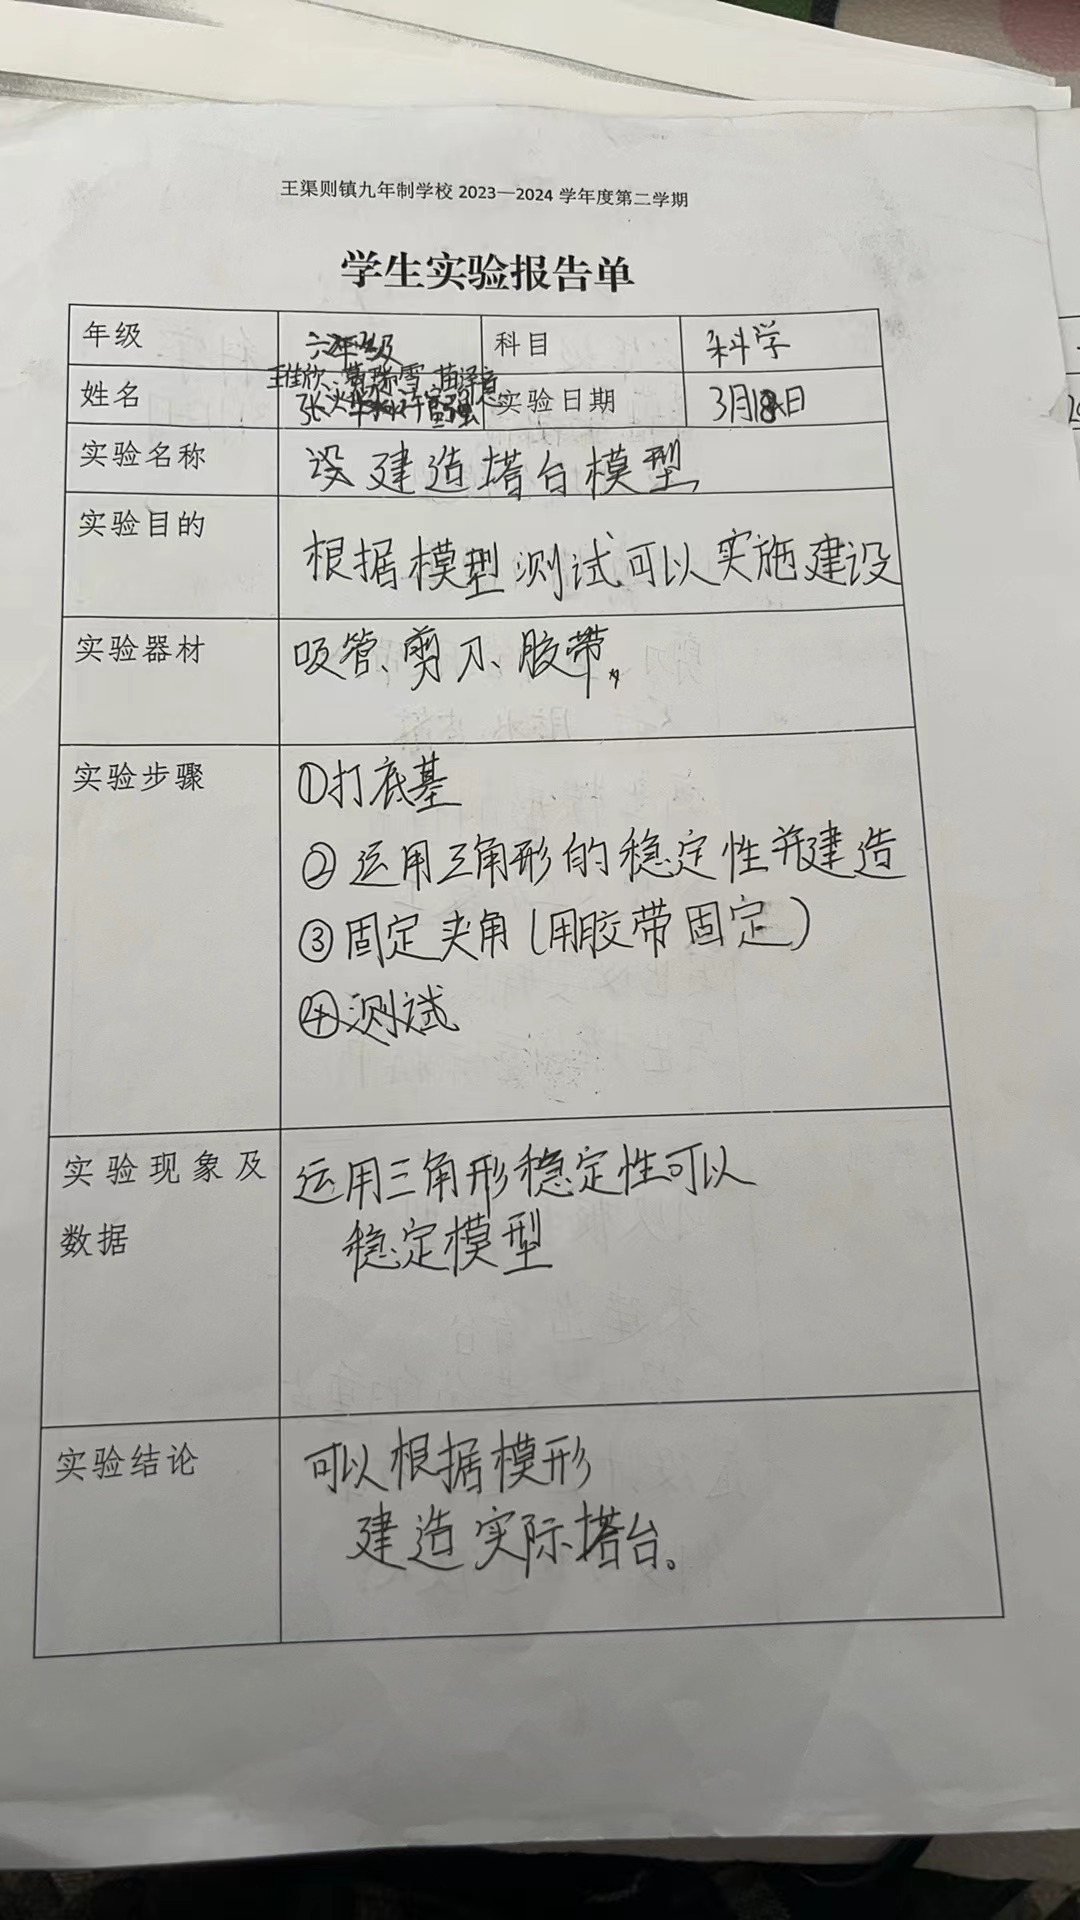 王渠则镇九年制学校 2023—2024 学年度第二学期
学生实验报告单
年级 六年级 科目 科学
姓名 实验日期 3月18日
实验名称 设 建造塔台模型
实验目的 根据模型测试可以实施建设
实验器材 吸管、剪刀、胶带。
实验步骤 ①打底基
②运用三角形的稳定性并建造
③固定夹角(用胶带固定)
④测试
实验现象及 运用三角形稳定性可以
数据 稳定模型
实验结论 可以根据模形
建造实际塔台。